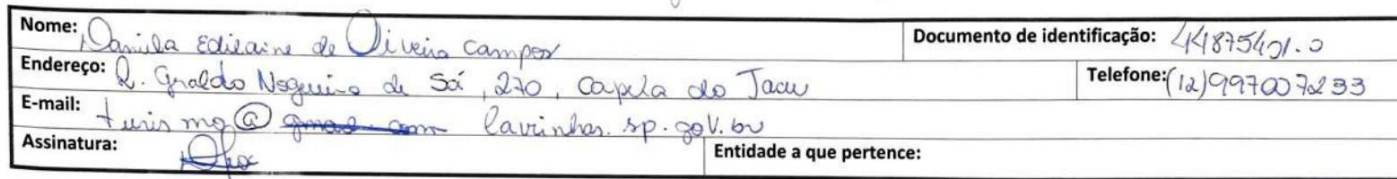 Nome: Daniela Edilaine de Oliveira Campos Documento de identificação: 44875401-0
Endereço: R. Geraldo Nogueira de Sá, 270, Capela do Jacu Telefone: (12) 997007233
E-mail: turismo@ gmail.com lavrinhas.sp.gov.br
Assinatura: Entidade a que pertence: